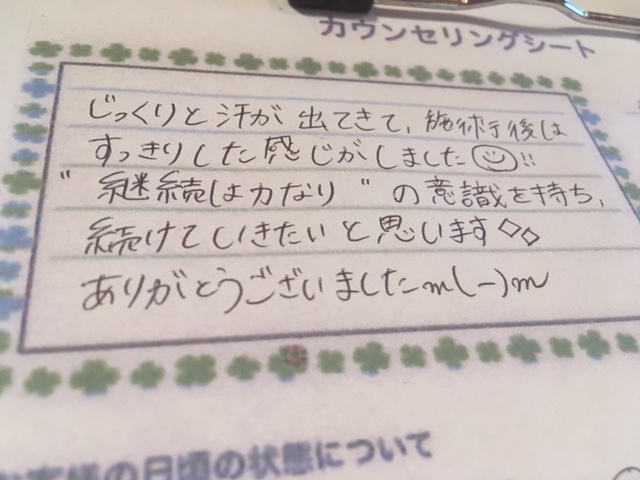 カウンセリングシート
じっくりと汗が出てきて、施術後は
すっきりした感じがしました☺!!
"継続は力なり"の意識を持ち、
続けていきたいと思います◇◇
ありがとうございましたm(-)m
お客様の日頃の状態について